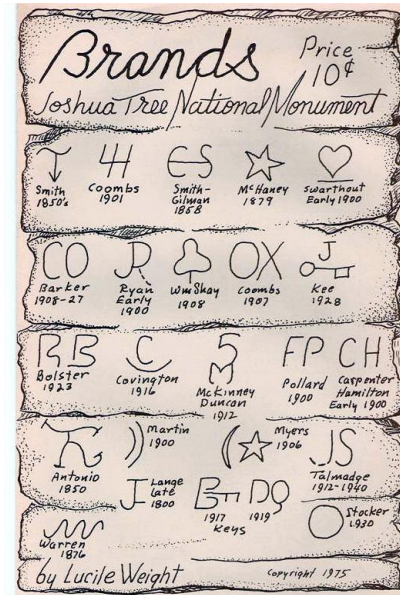 Brands
Price
10¢
Joshua Tree National Monument
Smith
1850's
Coombs
1901
Smith-
Gilman
1858
McHaney
1879
Swarthout
Early 1900
CO
Barker
1908-27
Ryan
Early
1900
Wm Shay
1908
OX
Coombs
1907
J
Kee
1928
RB
Bolster
1923
C
Covington
1916
5
M
McKinney
Duncan
1912
FP
Pollard
1900
CH
Carpenter
Hamilton
Early 1900
Antonio
1850
Martin
1900
Myers
1906
JS
Talmadge
1912-1940
J
Lange
late
1800
1917
DQ
1919
Keys
Stocker
1930
Warren
1876
by Lucile Weight
Copyright 1975